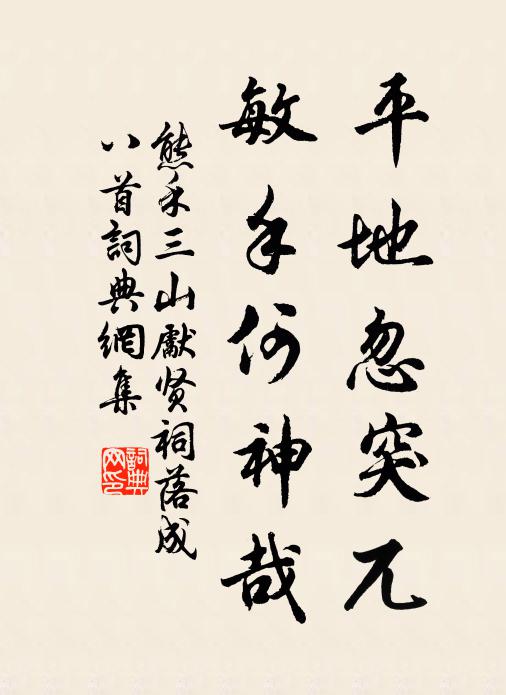 平地忽突兀
敏手何神哉
熊禾三山獻贤祠落成
八首詞典網集
詞典網印